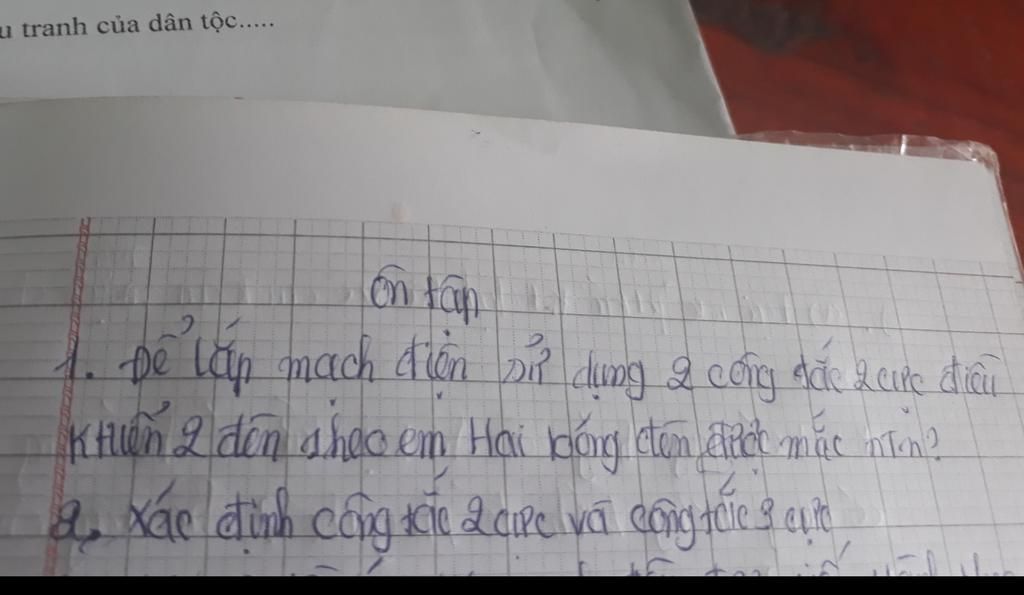 u tranh của dân tộc.....
Ôn tập
1. Để lắp mạch điện sử dụng 2 công tắc 2 cực điều
khiển 2 đèn theo em Hai bóng đèn được mắc ntn?
2. Xác định công tắc 2 cực và công tắc 3 cực